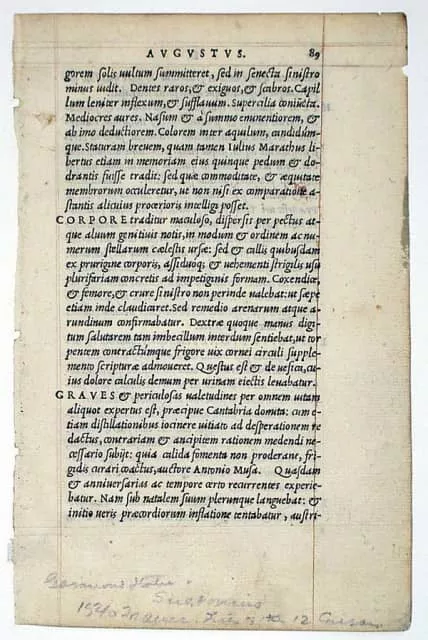 AVGVSTVS. 89
gorem solis uultum summitteret, sed in senecta sinistro
minus uidit. Dentes raros, & exiguos, & scabros. Capil
lum leniter inflexum, & sufflauum. Supercilia coniūcta.
Mediocres aures. Nasum & à summo eminentiorem, &
ab imo deductiorem. Colorem inter aquilum, candidúm-
que. Staturam breuem, quam tamen Iulius Marathus li
bertus etiam in memoriam eius quinque pedum & do-
drantis fuisse tradit: sed quæ commoditate, & æquitate
membrorum occuleretur, ut non nisi ex comparatione a-
stantis alicuius procerioris intelligi posset.
CORPORE traditur maculoso, dispersis per pectus at-
que aluum genitiuis notis, in modum & ordinem ac nu-
merum stellarum cælestis ursæ: sed & callis quibusdam
ex prurigine corporis, assiduoq; & uehementi strigilis usu
plurifariam concretis ad impetiginis formam. Coxendice,
& femore, & crure sinistro non perinde ualebat: ut sæpe
etiam inde claudicaret. Sed remedio arenarum atque a-
rundinum confirmabatur. Dextræ quoque manus digi
tum salutarem tam imbecillum interdum sentiebat, ut tor
pentem contractúmque frigore uix cornei circuli supple
mento scripturæ admoueret. Questus est & de uesica, cu
ius dolore calculis demum per urinam eiectis leuabatur.
GRAVES & periculosas ualetudines per omnem uitam
aliquot expertus est, præcipue Cantabria domita: cum e-
tiam distillationibus iocinere uitiato ad desperationem re
dactus, contrariam & ancipitem rationem medendi ne-
cessario subijt: quia calida fomenta non proderant, fri-
gidis curari coactus, auctore Antonio Musa. Quasdam
& anniuersarias ac tempore certo recurrentes experie-
batur. Nam sub natalem suum plerunque languebat: &
initio ueris præcordiorum inflatione tentabatur, austri-
Suetonius
1540
12